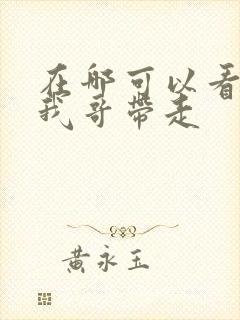 在哪可以看
我哥带走
黄永玉